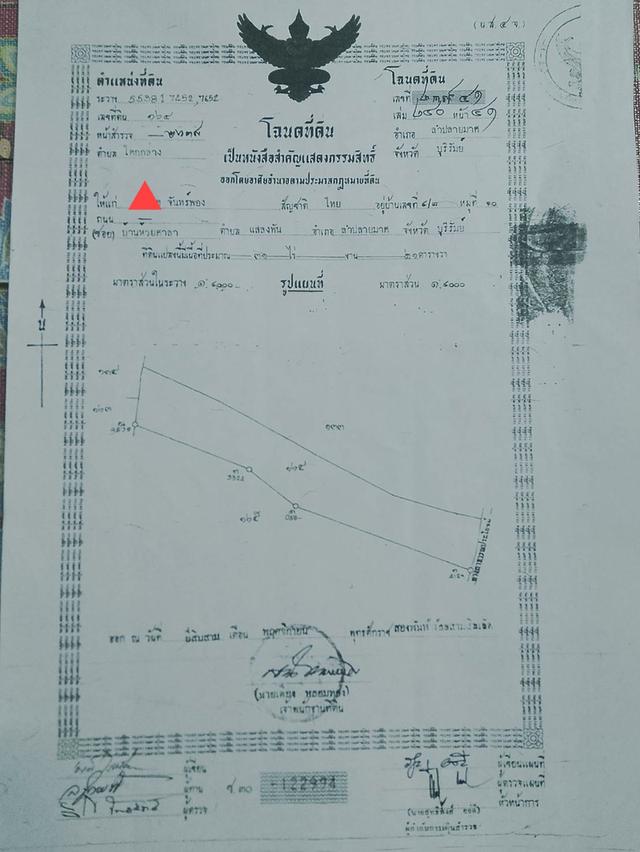 (น.ส. ๔ จ.)
ตำแหน่งที่ดิน
ระวาง 5538 I 7452, 7652
เลขที่ดิน ๑๖๔
หน้าสำรวจ
ตำบล โคกกลาง
โฉนดที่ดิน
เลขที่
เล่ม ๒๔๐ หน้า ๔๑
อำเภอ ลำปลายมาศ
จังหวัด บุรีรัมย์
โฉนดที่ดิน
เป็นหนังสือสำคัญแสดงกรรมสิทธิ์
ออกโดยอาศัยอำนาจตามประมวลกฎหมายที่ดิน
ให้แก่ จันทร์พอง สัญชาติ ไทย อยู่บ้านเลขที่ หมู่ที่ ๑๐
ถนน
(ซอย) บ้านห้วยศาลา ตำบล แสลงพัน อำเภอ ลำปลายมาศ จังหวัด บุรีรัมย์
ที่ดินแปลงนี้มีเนื้อที่ประมาณ ๓๑ ไร่ งาน ๒๑ ตารางวา
มาตราส่วนในระวาง ๑:๔๐๐๐ รูปแผนที่ มาตราส่วน ๑:๔๐๐๐
น
๑๓๓
๑๖๔
๑๖๕
ทางสาธารณประโยชน์
ออก ณ วันที่ ยี่สิบสาม เดือน พฤศจิกายน พุทธศักราช
เจ้าพนักงานที่ดิน
ผู้เขียน
ผู้ทาน
ผู้ตรวจ
ช ๓๐
122994
ผู้เขียนแผนที่
ผู้ตรวจแผนที่
หัวหน้าการ
ผู้กำกับการเดินสำรวจ